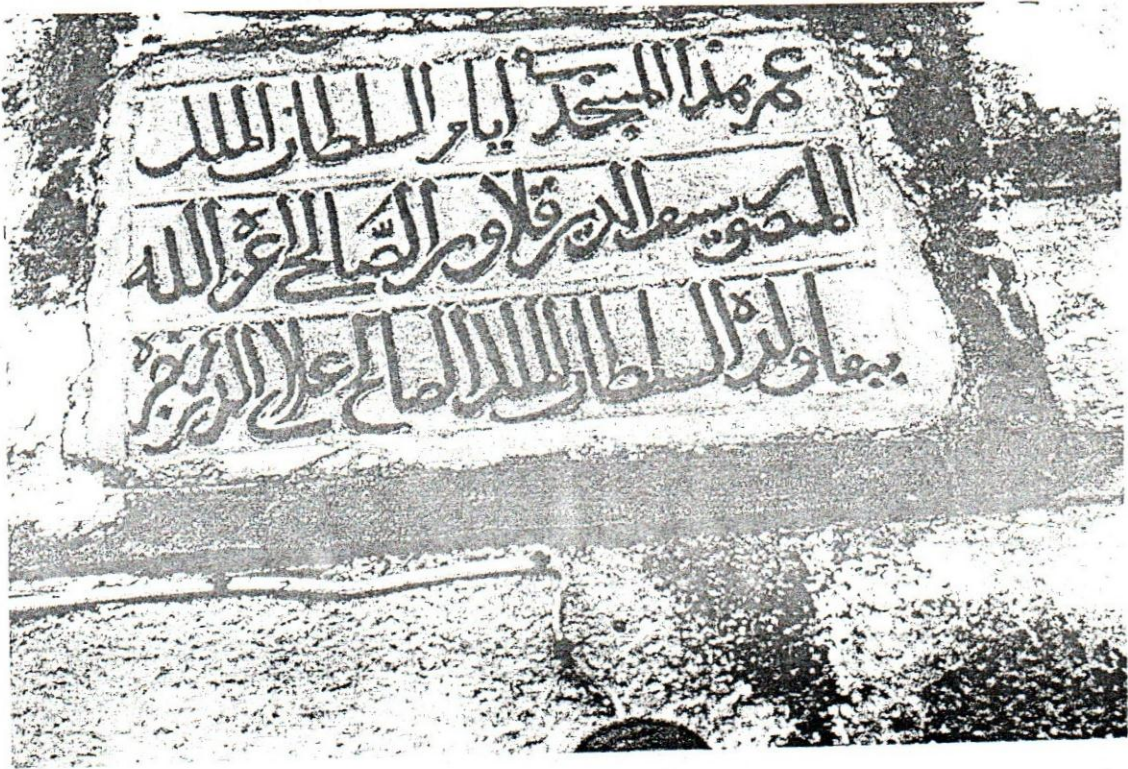 عمر هذا المسجد في أيام السلطان الملك
المنصور سيف الدين قلاوون الصالحي أعز الله
ببقا ولده السلطان الملك الصالح علاي الدين